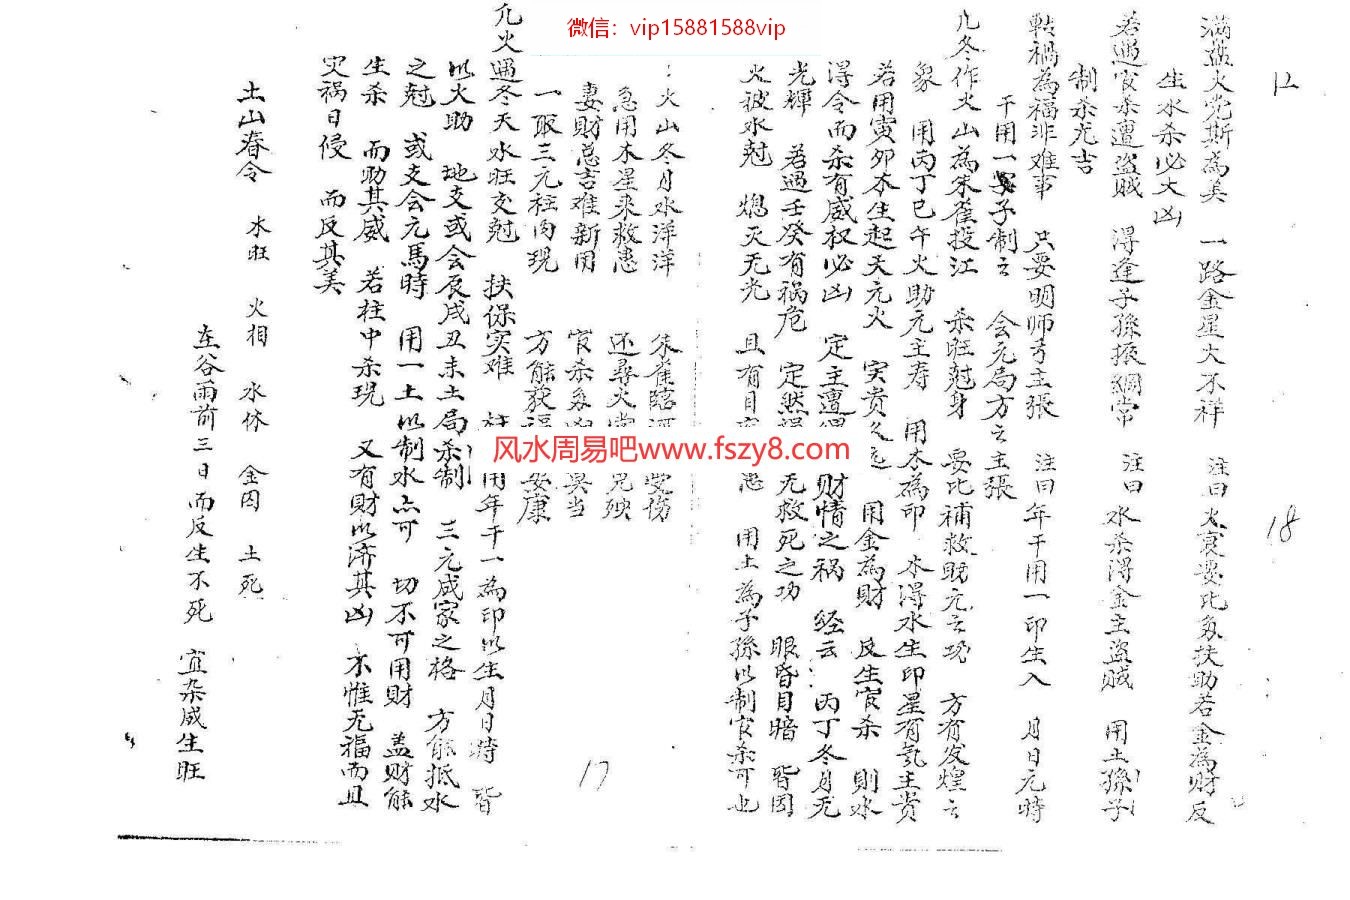 微信：vip15881588vip
12
满盘火党斯為美 一路金星大不祥 注曰火衰要比多扶助若金為财反
生水杀必大凶
若遇官杀遭盗贼 浔逢子孫振綱常 注曰 水杀浔金主盗贼 用土孫子
制杀尤吉
轉禍為福非难事 只要明师才主張 注曰年干用一印生入 月日元時
干用一子制之 会元局方之主張
18
凢冬作火山為朱雀投江 杀旺尅身 要比補救助元之功 方有发煌之
象 用丙丁巳午火助元主寿 用木為印 木浔水生印星有氣主贵
若用寅卯木生起天元火 实贵久远 用金為财 反生官杀 則水
浔令而杀有威权必凶 定主遭 财情之祸 经云：丙丁冬月无
光輝 若遇壬癸有祸危 定然 无救死之功 眼昏目暗 皆因
火被水尅 熄灭无光 且有目 患 用土為子孫以制官杀可也
火山冬月水洋洋 朱雀臨 受傷
急用木星来救患 还尋火 兄殃
妻财总吉难新用 官杀多凶 莫当
一取三元柱内現 方能获福 安康
凢火遇冬天水旺交尅 扶保实难 柱 用年干一為印以生月日時 皆
以火助 地支或会辰戌丑未土局杀制 三元咸家之格 方能抵水
之尅 或支会元馬時 用一土以制水点可 切不可用财 盖财能
生杀 而助其威 若柱中杀現 又有財以济其凶 不惟无福而且
灾祸日侵 而反其美
17
土山春令 木旺 火相 水休 金囚 土死
在谷雨前三日而反生不死 宜杂咸生旺
风水周易吧www.fszy8.com